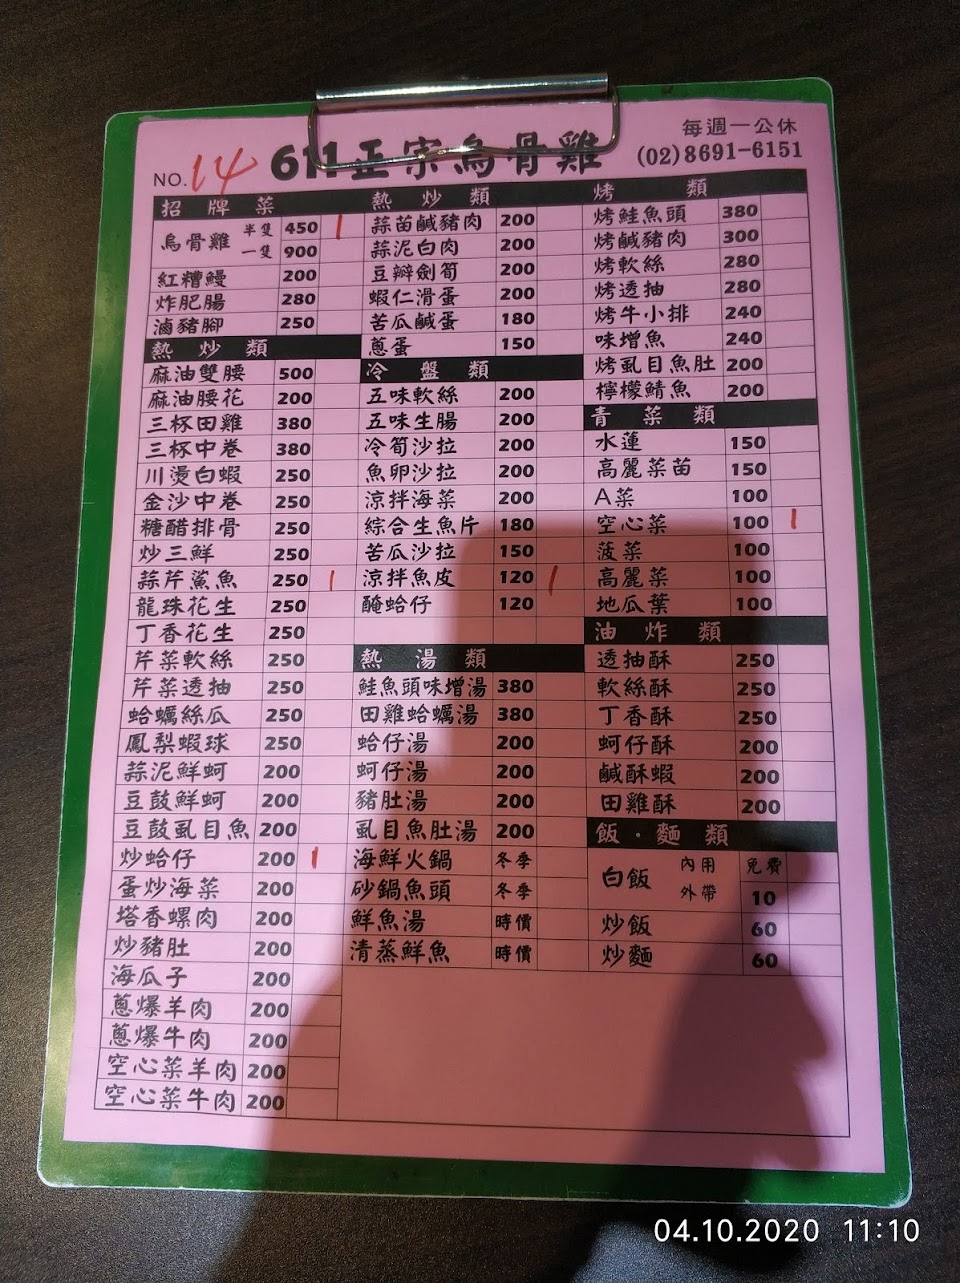 每週一公休
NO.14 611正宗烏骨雞 (02)8691-6151
招牌菜
烏骨雞 半隻 450 1
一隻 900
紅糟鰻 200
炸肥腸 280
滷豬腳 250
熱炒類
麻油雙腰 500
麻油腰花 200
三杯田雞 380
三杯中卷 380
川燙白蝦 250
金沙中卷 250
糖醋排骨 250
炒三鮮 250
蒜芹鯊魚 250 1
龍珠花生 250
丁香花生 250
芹菜軟絲 250
芹菜透抽 250
蛤蠣絲瓜 250
鳳梨蝦球 250
蒜泥鮮蚵 200
豆鼓鮮蚵 200
豆鼓虱目魚 200
炒蛤仔 200 1
蛋炒海菜 200
塔香螺肉 200
炒豬肚 200
海瓜子 200
蔥爆羊肉 200
蔥爆牛肉 200
空心菜羊肉 200
空心菜牛肉 200
熱炒類
蒜苗鹹豬肉 200
蒜泥白肉 200
豆瓣劍筍 200
蝦仁滑蛋 200
苦瓜鹹蛋 180
蔥蛋 150
冷盤類
五味軟絲 200
五味生腸 200
冷筍沙拉 200
魚卵沙拉 200
涼拌海菜 200
綜合生魚片 180
苦瓜沙拉 150
涼拌魚皮 120 1
醃蛤仔 120
熱湯類
鮭魚頭味增湯 380
田雞蛤蠣湯 380
蛤仔湯 200
蚵仔湯 200
豬肚湯 200
虱目魚肚湯 200
海鮮火鍋 冬季
砂鍋魚頭 冬季
鮮魚湯 時價
清蒸鮮魚 時價
烤類
烤鮭魚頭 380
烤鹹豬肉 300
烤軟絲 280
烤透抽 280
烤牛小排 240
味增魚 240
烤虱目魚肚 200
檸檬鯖魚 200
青菜類
水蓮 150
高麗菜苗 150
A菜 100
空心菜 100 1
菠菜 100
高麗菜 100
地瓜葉 100
油炸類
透抽酥 250
軟絲酥 250
丁香酥 250
蚵仔酥 200
鹹酥蝦 200
田雞酥 200
飯·麵類
白飯 內用 免費
外帶 10
炒飯 60
炒麵 60
04.10.2020 11:10